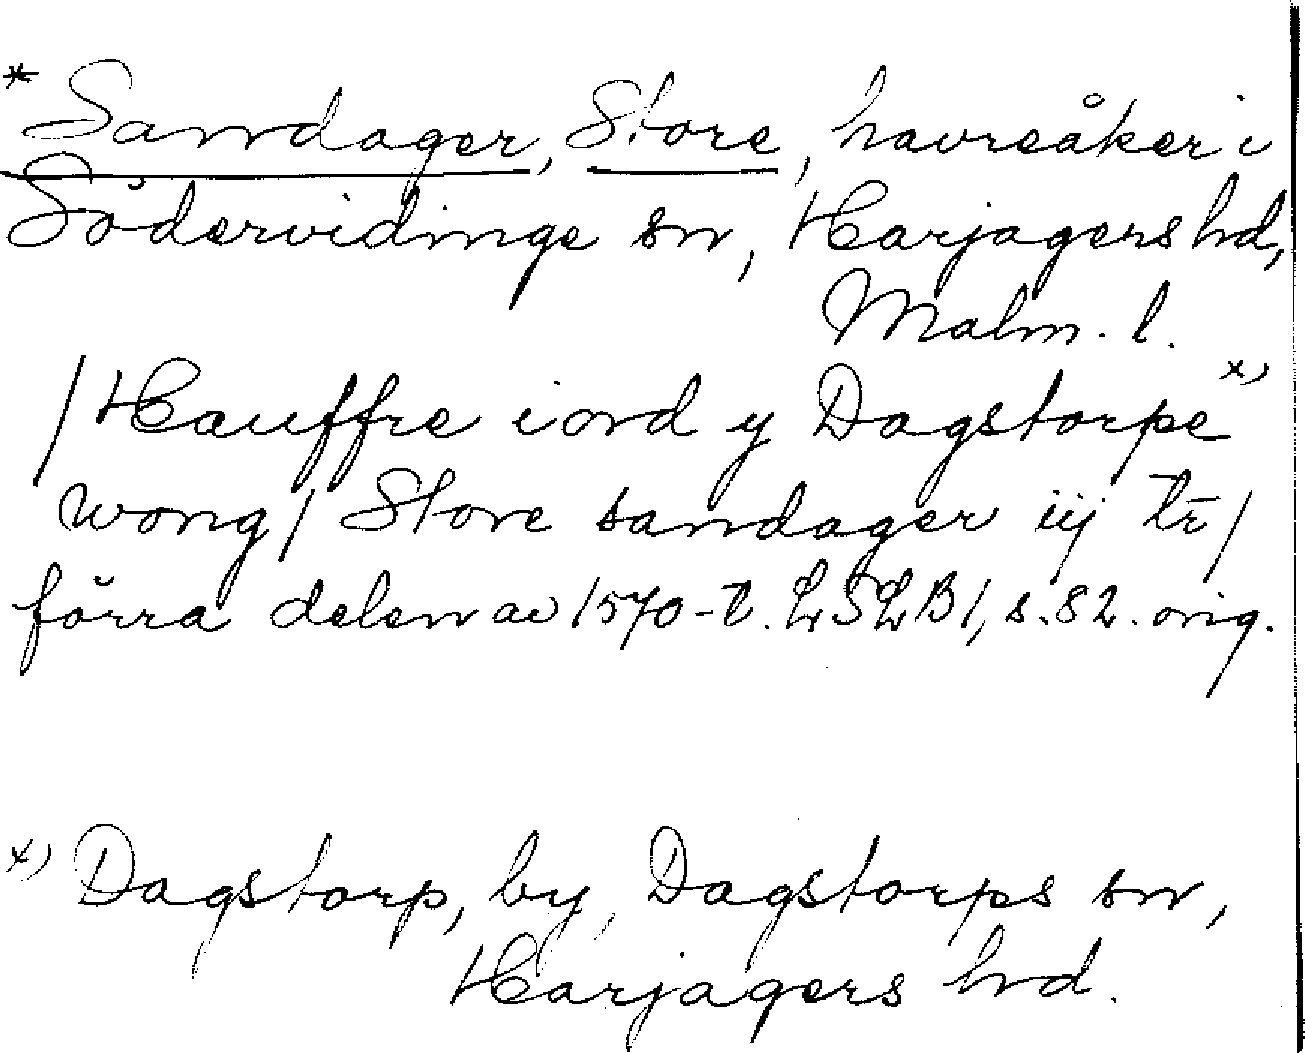 * Sandager, Store, havreåker i
Södervidinge sn, Harjagers hd,
Malm. l.
/Hauffre iord y Dagstorpe x)
wong/ Store sandager iij tr̄/
förra delen av 1570-t. LSLB1, s. 82. orig.
x) Dagstorp, by, Dagstorps sn,
Harjagers hd.